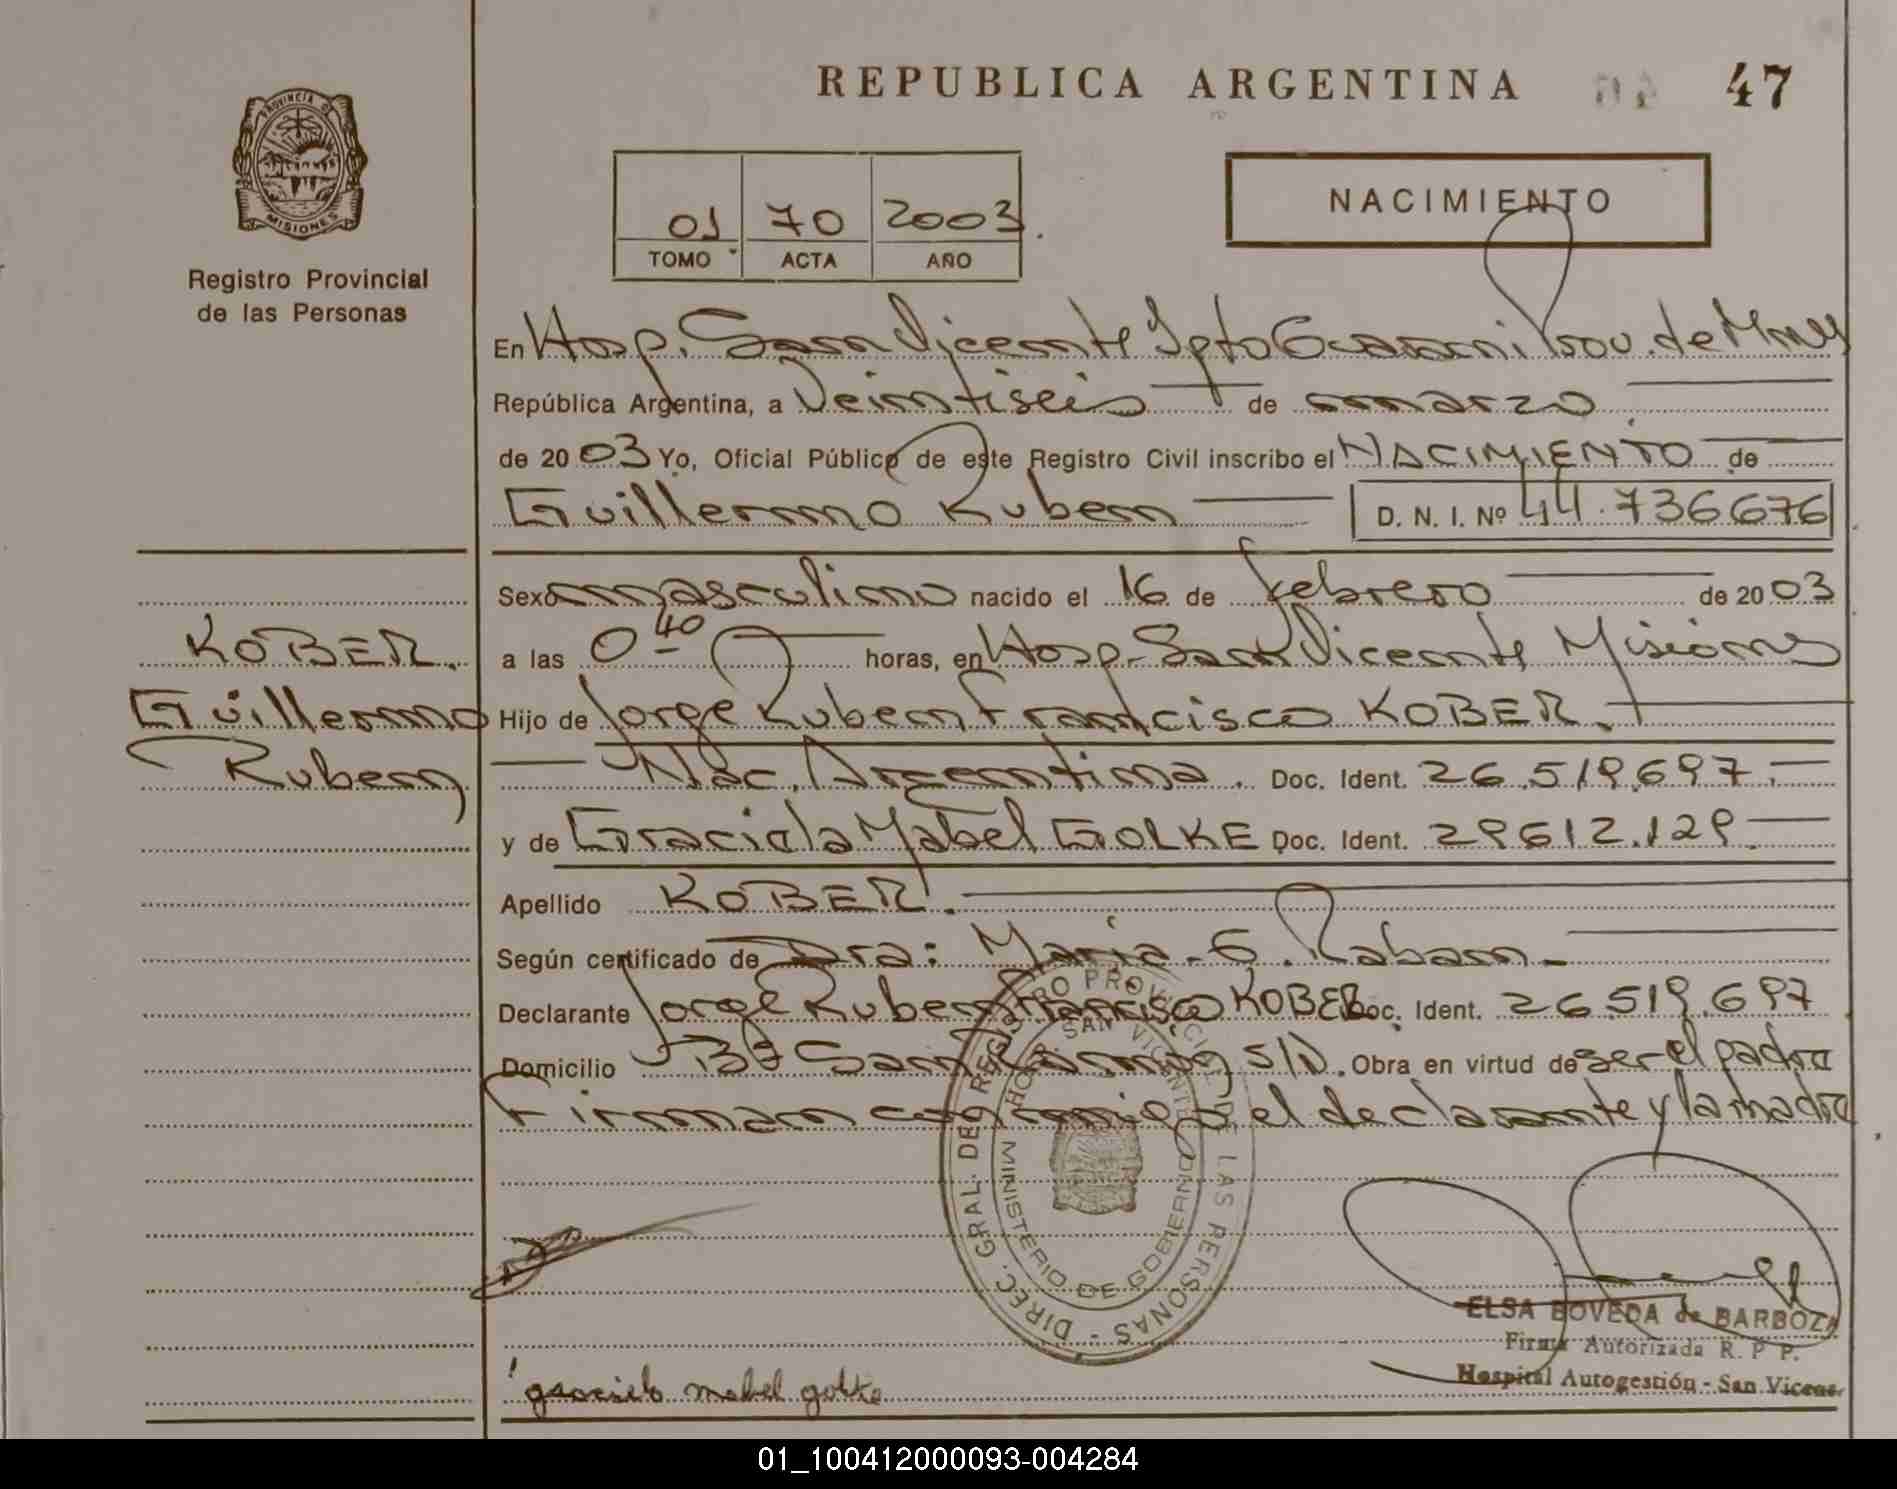 REPUBLICA ARGENTINA 47
PROVINCIA DE
MISIONES
Registro Provincial
de las Personas
01 70 2003
TOMO ACTA AÑO
NACIMIENTO
En Hosp. San Vicente Dpto Guarani Prov. de Mnes
República Argentina, a Veintiseis de marzo
de 2003 Yo, Oficial Público de este Registro Civil inscribo el NACIMIENTO de
Guillermo Ruben D. N. I. Nº 44.736676
Sexo masculino nacido el 16 de febrero de 2003
KOBER. a las 0 40 horas, en Hosp. San Vicente Misiones
Guillermo Hijo de Jorge Ruben Francisco KOBER.
Ruben Nac. Argentina. Doc. Ident. 26.519.697.
y de Graciela Mabel GOLKE Doc. Ident. 29612.129.
Apellido KOBER.
Según certificado de Dra: Maria. G. Raban.
Declarante Jorge Ruben Francisco KOBER Doc. Ident. 26.519.697
Domicilio Bº San Ramon S/N. Obra en virtud de ser el padre
Firman conmigo el declarante y la madre
DIREC. GRAL. DEL REGISTRO PROVINCIAL DE LAS PERSONAS -
HOSP. SAN VICENTE
MINISTERIO DE GOBIERNO
ELSA BOVEDA de BARBOZA
Firma Autorizada R. P P.
Hospital Autogestión - San Vicente
graciela mabel golke
01_100412000093-004284